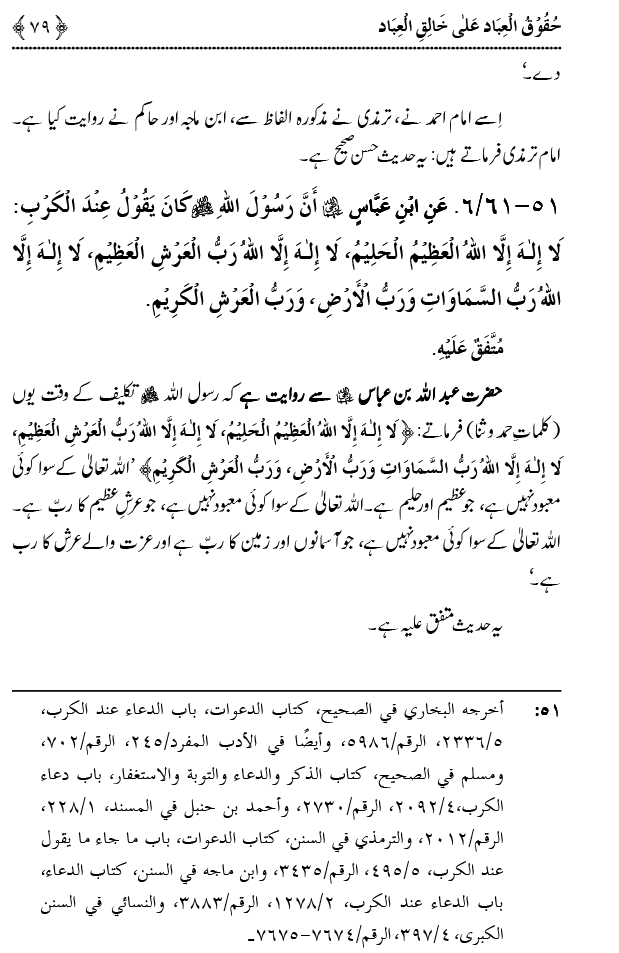 حُقُوْقُ الْعِبَاد عَلٰی خَالِقِ الْعِبَاد ﴿ ٧٩ ﴾
دے۔‘
اِسے امام احمد نے، ترمذی نے مذکورہ الفاظ سے، ابن ماجہ اور حاکم نے روایت کیا ہے۔
امام ترمذی فرماتے ہیں: یہ حدیث حسن صحیح ہے۔
٥١-٦/٦١. عَنِ ابْنِ عَبَّاسٍ ﷠ أَنَّ رَسُوْلَ اللهِ ﷺ كَانَ يَقُوْلُ عِنْدَ الْكَرْبِ:
لَا إِلٰهَ إِلَّا اللهُ الْعَظِيْمُ الْحَلِيْمُ، لَا إِلٰهَ إِلَّا اللهُ رَبُّ الْعَرْشِ الْعَظِيْمِ، لَا إِلٰهَ إِلَّا
اللهُ رَبُّ السَّمَاوَاتِ وَرَبُّ الْأَرْضِ، وَرَبُّ الْعَرْشِ الْكَرِيْمِ.
مُتَّفَقٌ عَلَيْهِ.
حضرت عبد اللہ بن عباس ﷠ سے روایت ہے کہ رسول اللہ ﷺ تکلیف کے وقت یوں
(کلماتِ حمد و ثنا) فرماتے: ﴿لَا إِلٰهَ إِلَّا اللهُ الْعَظِيْمُ الْحَلِيْمُ، لَا إِلٰهَ إِلَّا اللهُ رَبُّ الْعَرْشِ الْعَظِيْمِ،
لَا إِلٰهَ إِلَّا اللهُ رَبُّ السَّمَاوَاتِ وَرَبُّ الْأَرْضِ، وَرَبُّ الْعَرْشِ الْكَرِيْمِ﴾ ’اللہ تعالیٰ کے سوا کوئی
معبود نہیں ہے، جو عظیم اور حلیم ہے۔ اللہ تعالیٰ کے سوا کوئی معبود نہیں ہے، جو عرشِ عظیم کا ربّ ہے۔
اللہ تعالیٰ کے سوا کوئی معبود نہیں ہے، جو آسمانوں اور زمین کا ربّ ہے اور عزت والے عرش کا رب
ہے۔‘
یہ حدیث متفق علیہ ہے۔
٥١: أخرجه البخاري في الصحيح، كتاب الدعوات، باب الدعاء عند الكرب،
٥/٢٣٣٦، الرقم/٥٩٨٦، وأيضًا في الأدب المفرد/٢٤٥، الرقم/٧٠٢،
ومسلم في الصحيح، كتاب الذكر والدعاء والتوبة والاستغفار، باب دعاء
الكرب،٤/٢٠٩٢، الرقم/٢٧٣٠، وأحمد بن حنبل في المسند، ١/٢٢٨،
الرقم/٢٠١٢، والترمذي في السنن، كتاب الدعوات، باب ما جاء ما يقول
عند الكرب، ٥/٤٩٥، الرقم/٣٤٣٥، وابن ماجه في السنن، كتاب الدعاء،
باب الدعاء عند الكرب، ٢/١٢٧٨، الرقم/٣٨٨٣، والنسائي في السنن
الكبرى، ٤/٣٩٧، الرقم/٧٦٧٤-٧٦٧٥۔